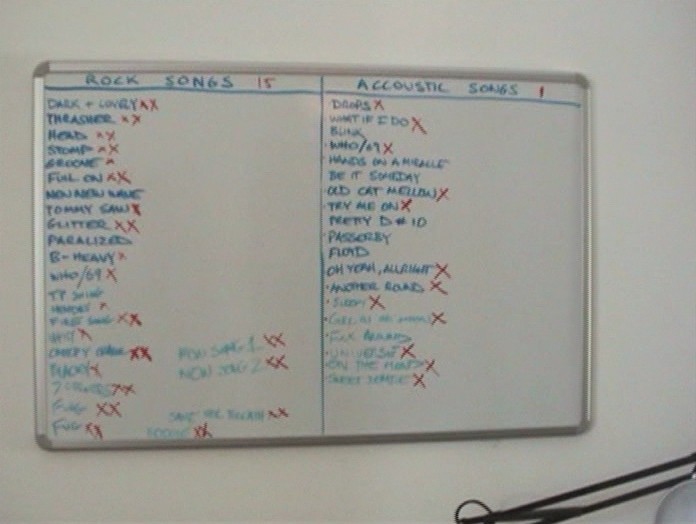 ROCK SONGS 15
DARK + LOVELY XX
THRASHER XX
HEAD XX
STOMP XX
GROOVE X
FULL ON XX
NEW NEW WAVE
TOMMY SAW X
GLITTER XX
PARALIZED
B-HEAVY X
WHO/69 X
TP SONG
HEROES X
FIRST SONG XX
X
CREEPY XX
X
XX
XX
FUG XX
NEW SONG 1 XX
NEW SONG 2 XX
SAVE THE XX
XX
ACCOUSTIC SONGS 1
DROPS X
WHAT IF I DO X
BLINK
WHO/69 X
HANDS ON A MIRACLE
BE IT SOMEDAY
OLD CAT MELLOW X
TRY ME ON X
PRETTY D # 10
PASSERBY
FLOYD
OH YEAH, ALLRIGHT X
ANOTHER ROUND X
SLEEPY X
GIRL IN THE X
AROUND
UNIVERSE X
ON THE X
SWEET X